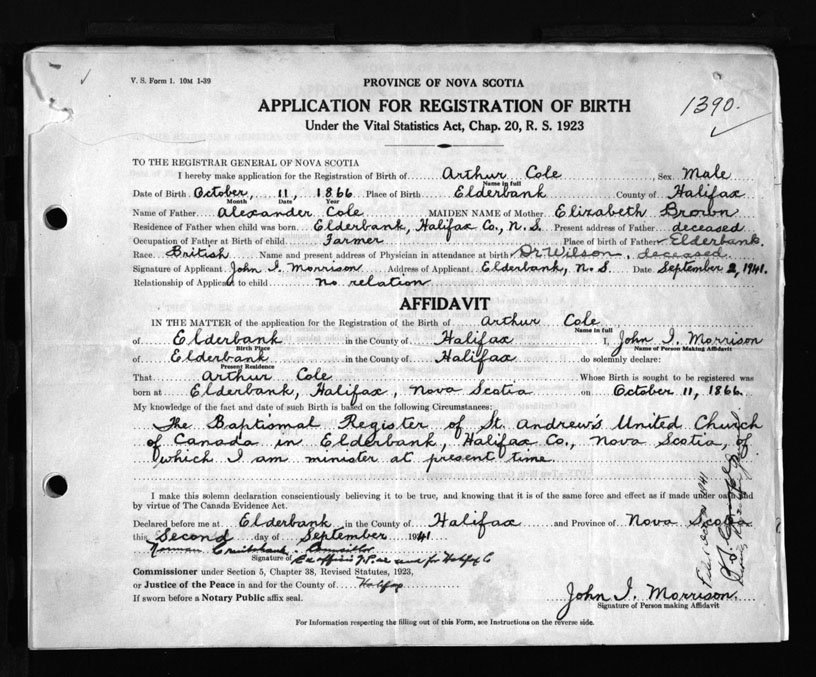 V. S. Form 1. 10M 1-39
PROVINCE OF NOVA SCOTIA
APPLICATION FOR REGISTRATION OF BIRTH
1390.
Under the Vital Statistics Act, Chap. 20, R. S. 1923
TO THE REGISTRAR GENERAL OF NOVA SCOTIA
I hereby make application for the Registration of Birth of Arthur Cole, Sex Male
Name in full
Date of Birth October, 11, 1866 Place of Birth Elderbank County of Halifax
Month Date Year
Name of Father Alexander Cole MAIDEN NAME of Mother Elizabeth Brown
Residence of Father when child was born Elderbank, Halifax Co., N. S. Present address of Father deceased
Occupation of Father at Birth of child Farmer Place of birth of Father Elderbank.
Race British Name and present address of Physician in attendance at birth Dr Wilson, deceased
Signature of Applicant John I. Morrison Address of Applicant Elderbank, N. S. Date September 2, 1941.
Relationship of Applicant to child no relation
AFFIDAVIT
IN THE MATTER of the application for the Registration of the Birth of Arthur Cole
Name in full
of Elderbank in the County of Halifax I, John I. Morrison
Birth Place Name of Person Making Affidavit
of Elderbank in the County of Halifax do solemnly declare:
Present Residence
That Arthur Cole Whose Birth is sought to be registered was
born at Elderbank, Halifax, Nova Scotia on October 11, 1866.
My knowledge of the fact and date of such Birth is based on the following Circumstances:
The Baptismal Register of St. Andrew's United Church
of Canada in Elderbank, Halifax Co., Nova Scotia, of
which I am minister at present time.
I make this solemn declaration conscientiously believing it to be true, and knowing that it is of the same force and effect as if made under oath and
by virtue of The Canada Evidence Act.
Declared before me at Elderbank in the County of Halifax and Province of Nova Scotia
this Second day of September 1941
Norman Cruikshank Councillor
Signature of Ex officio in and for Halifax Co
Commissioner under Section 5, Chapter 38, Revised Statutes, 1923,
or Justice of the Peace in and for the County of Halifax
If sworn before a Notary Public affix seal.
John I. Morrison.
Signature of Person making Affidavit
For Information respecting the filling out of this Form, see Instructions on the reverse side.